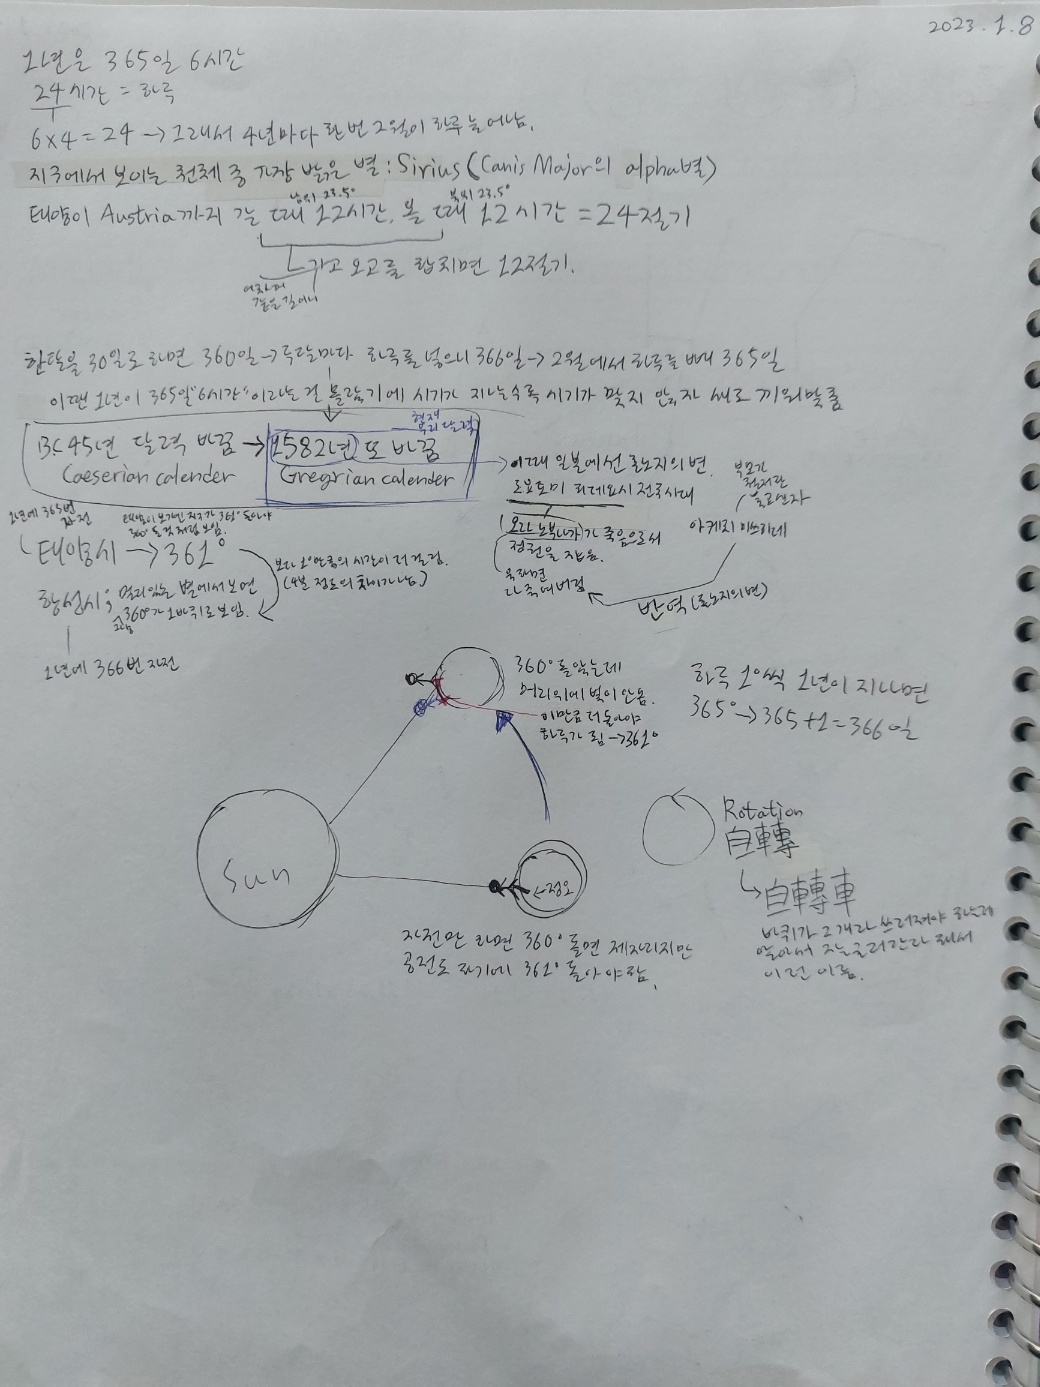 2023.1.8
1년은 365일 6시간
24시간 = 하루
6×4=24 → 그래서 4년마다 한번 2월이 하루 늘어남.
지구에서 보이는 천체 중 가장 밝은 별 : Sirius (Canis Major의 alpha별)
남위 23.5° 북위 23.5°
태양이 Austria까지 갈 때 12시간, 올 때 12시간 = 24절기
가고 오고를 합치면 12절기.
어차피
같은 길이니
한달을 30일로 하면 360일 → 두달마다 하루를 넣으니 366일 → 2월에서 하루를 빼 365일
이땐 1년이 365일"6시간"이라는 걸 몰랐기에 시기가 지날수록 시기가 맞지 않자 새로 끼워맞춤
현재
우리 달력
BC 45년 달력 바꿈 → 1582년 또 바꿈
Caeserian calender Gregrian calender
이때 일본에선 혼노지의 변.
도요토미 히데요시 전국시대
(오다 노부나가)가 죽음으로써
정권을 잡음.
욱하면
다 죽여버림
부모가
처치란
아케치 미쓰히데
반역 (혼노지의 변)
1년에 365번
자전
태양이 보기엔 지구가 361° 돌아야
360° 돈 것처럼 보임.
태양시 → 361°
보다 1°만큼의 시간이 더 걸림.
(4분 정도의 차이가 남)
항성시 ; 멀리있는 별에서 보면
그냥 360°가 1바퀴로 보임.
1년에 366번 자전
360° 돌았는데
머리위에 빛이 안옴.
이만큼 더 돌아야
하루가 됨 → 361°
하루 1°씩 1년이 지나면
365° → 365+1=366일
Sun
←정오
자전만 하면 360° 돌면 제자리지만
공전도 하기에 361° 돌아야함.
Rotation
自轉
自轉車
바퀴가 2개라 쓰러져야 하는데
알아서 잘 굴러간다 해서
이런 이름.